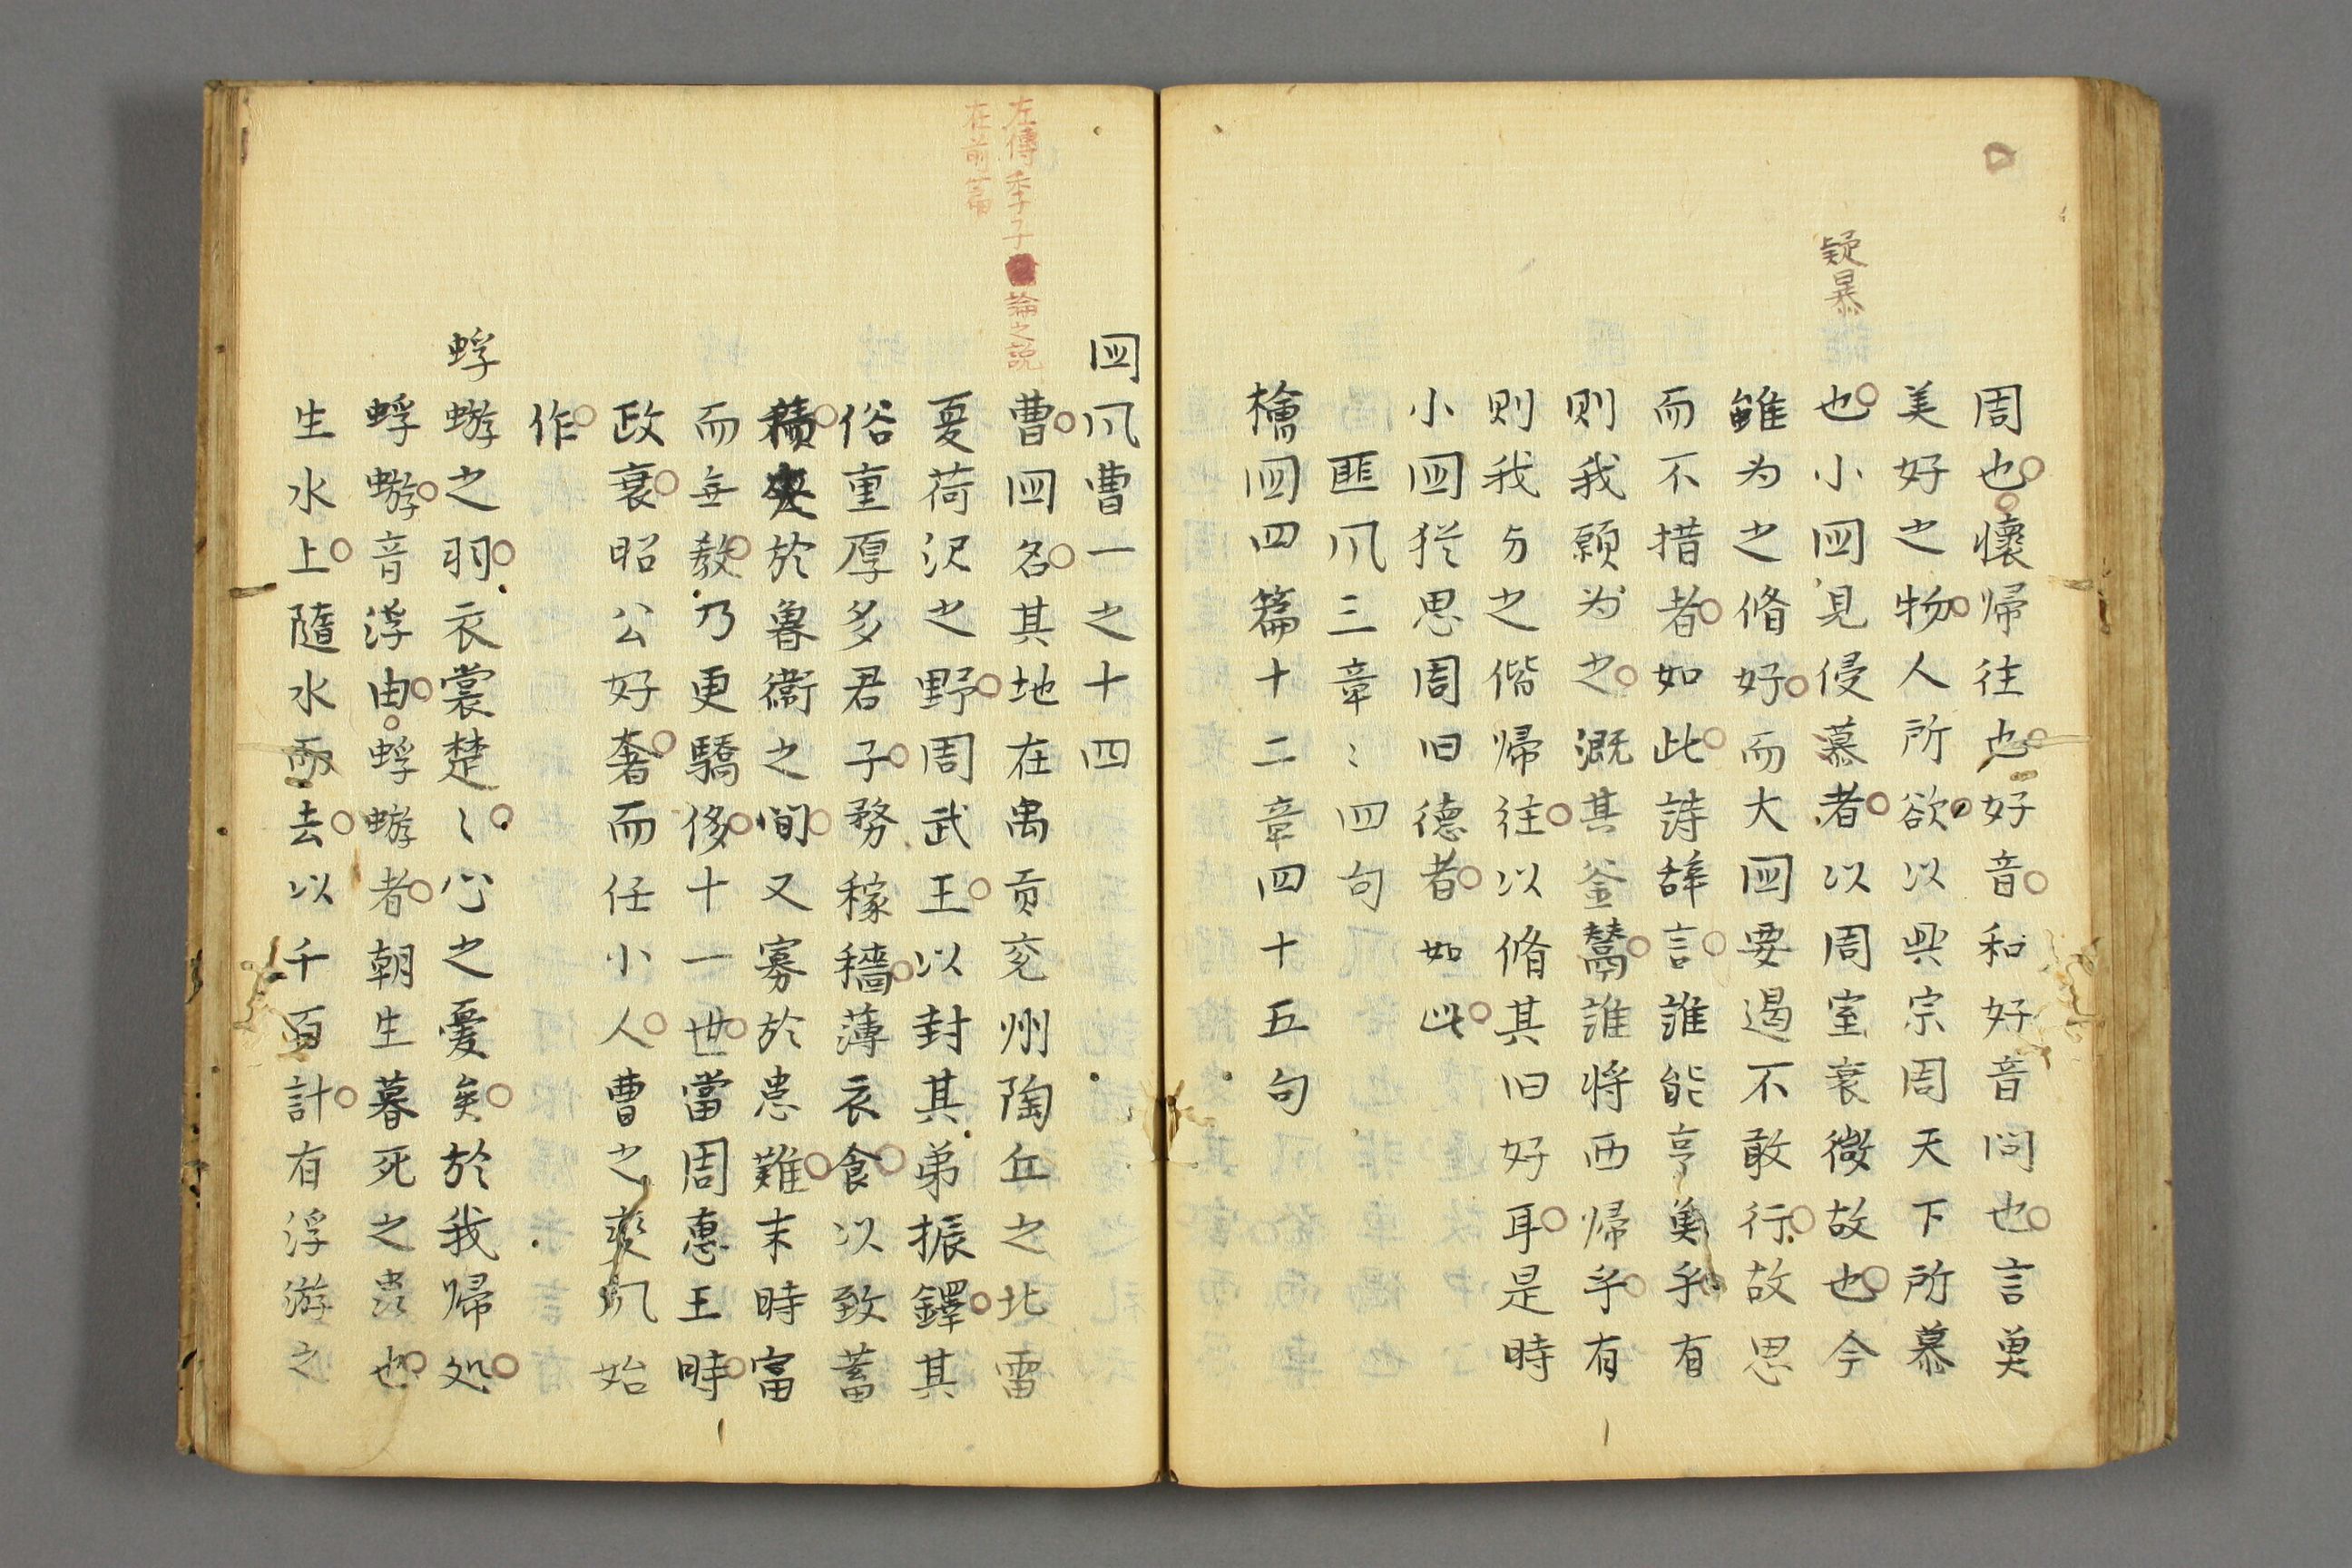 疑暴
周也懷帰往也好音和好音問也言奠
美好之物人所欲以興宗周天下所慕
也小囶見侵慕者以周室衰微故也今
雖为之脩好而大囶要遏不敢行故思
而不措者如此詩辞言誰能亨奠乎有
则我願为之溉其釜鬵誰将西帰乎有
则我与之偕帰往以脩其旧好耳是時
小囶犹思周旧德者如此
匪凨三章〻四句
檜囶四篇十二章四十五句
左傳季子論之説
在前篇
囶凨曹一之十四
曹囶名其地在禹貢兖州陶丘之北雷
夏荷沢之野周武王以封其弟振鐸其
俗重厚多君子務稼穡薄衣食以致蓄
積夾於魯衞之间又寡於患難末時富
而无教乃更驕侈十一世當周惠王時
政衰昭公好奢而任小人曹之変凨始
作
蜉蝣之羽衣裳楚〻心之憂矣於我帰処
蜉蝣音浮由蜉蝣者朝生暮死之虫也
生水上隨水而去以千百計有浮游之